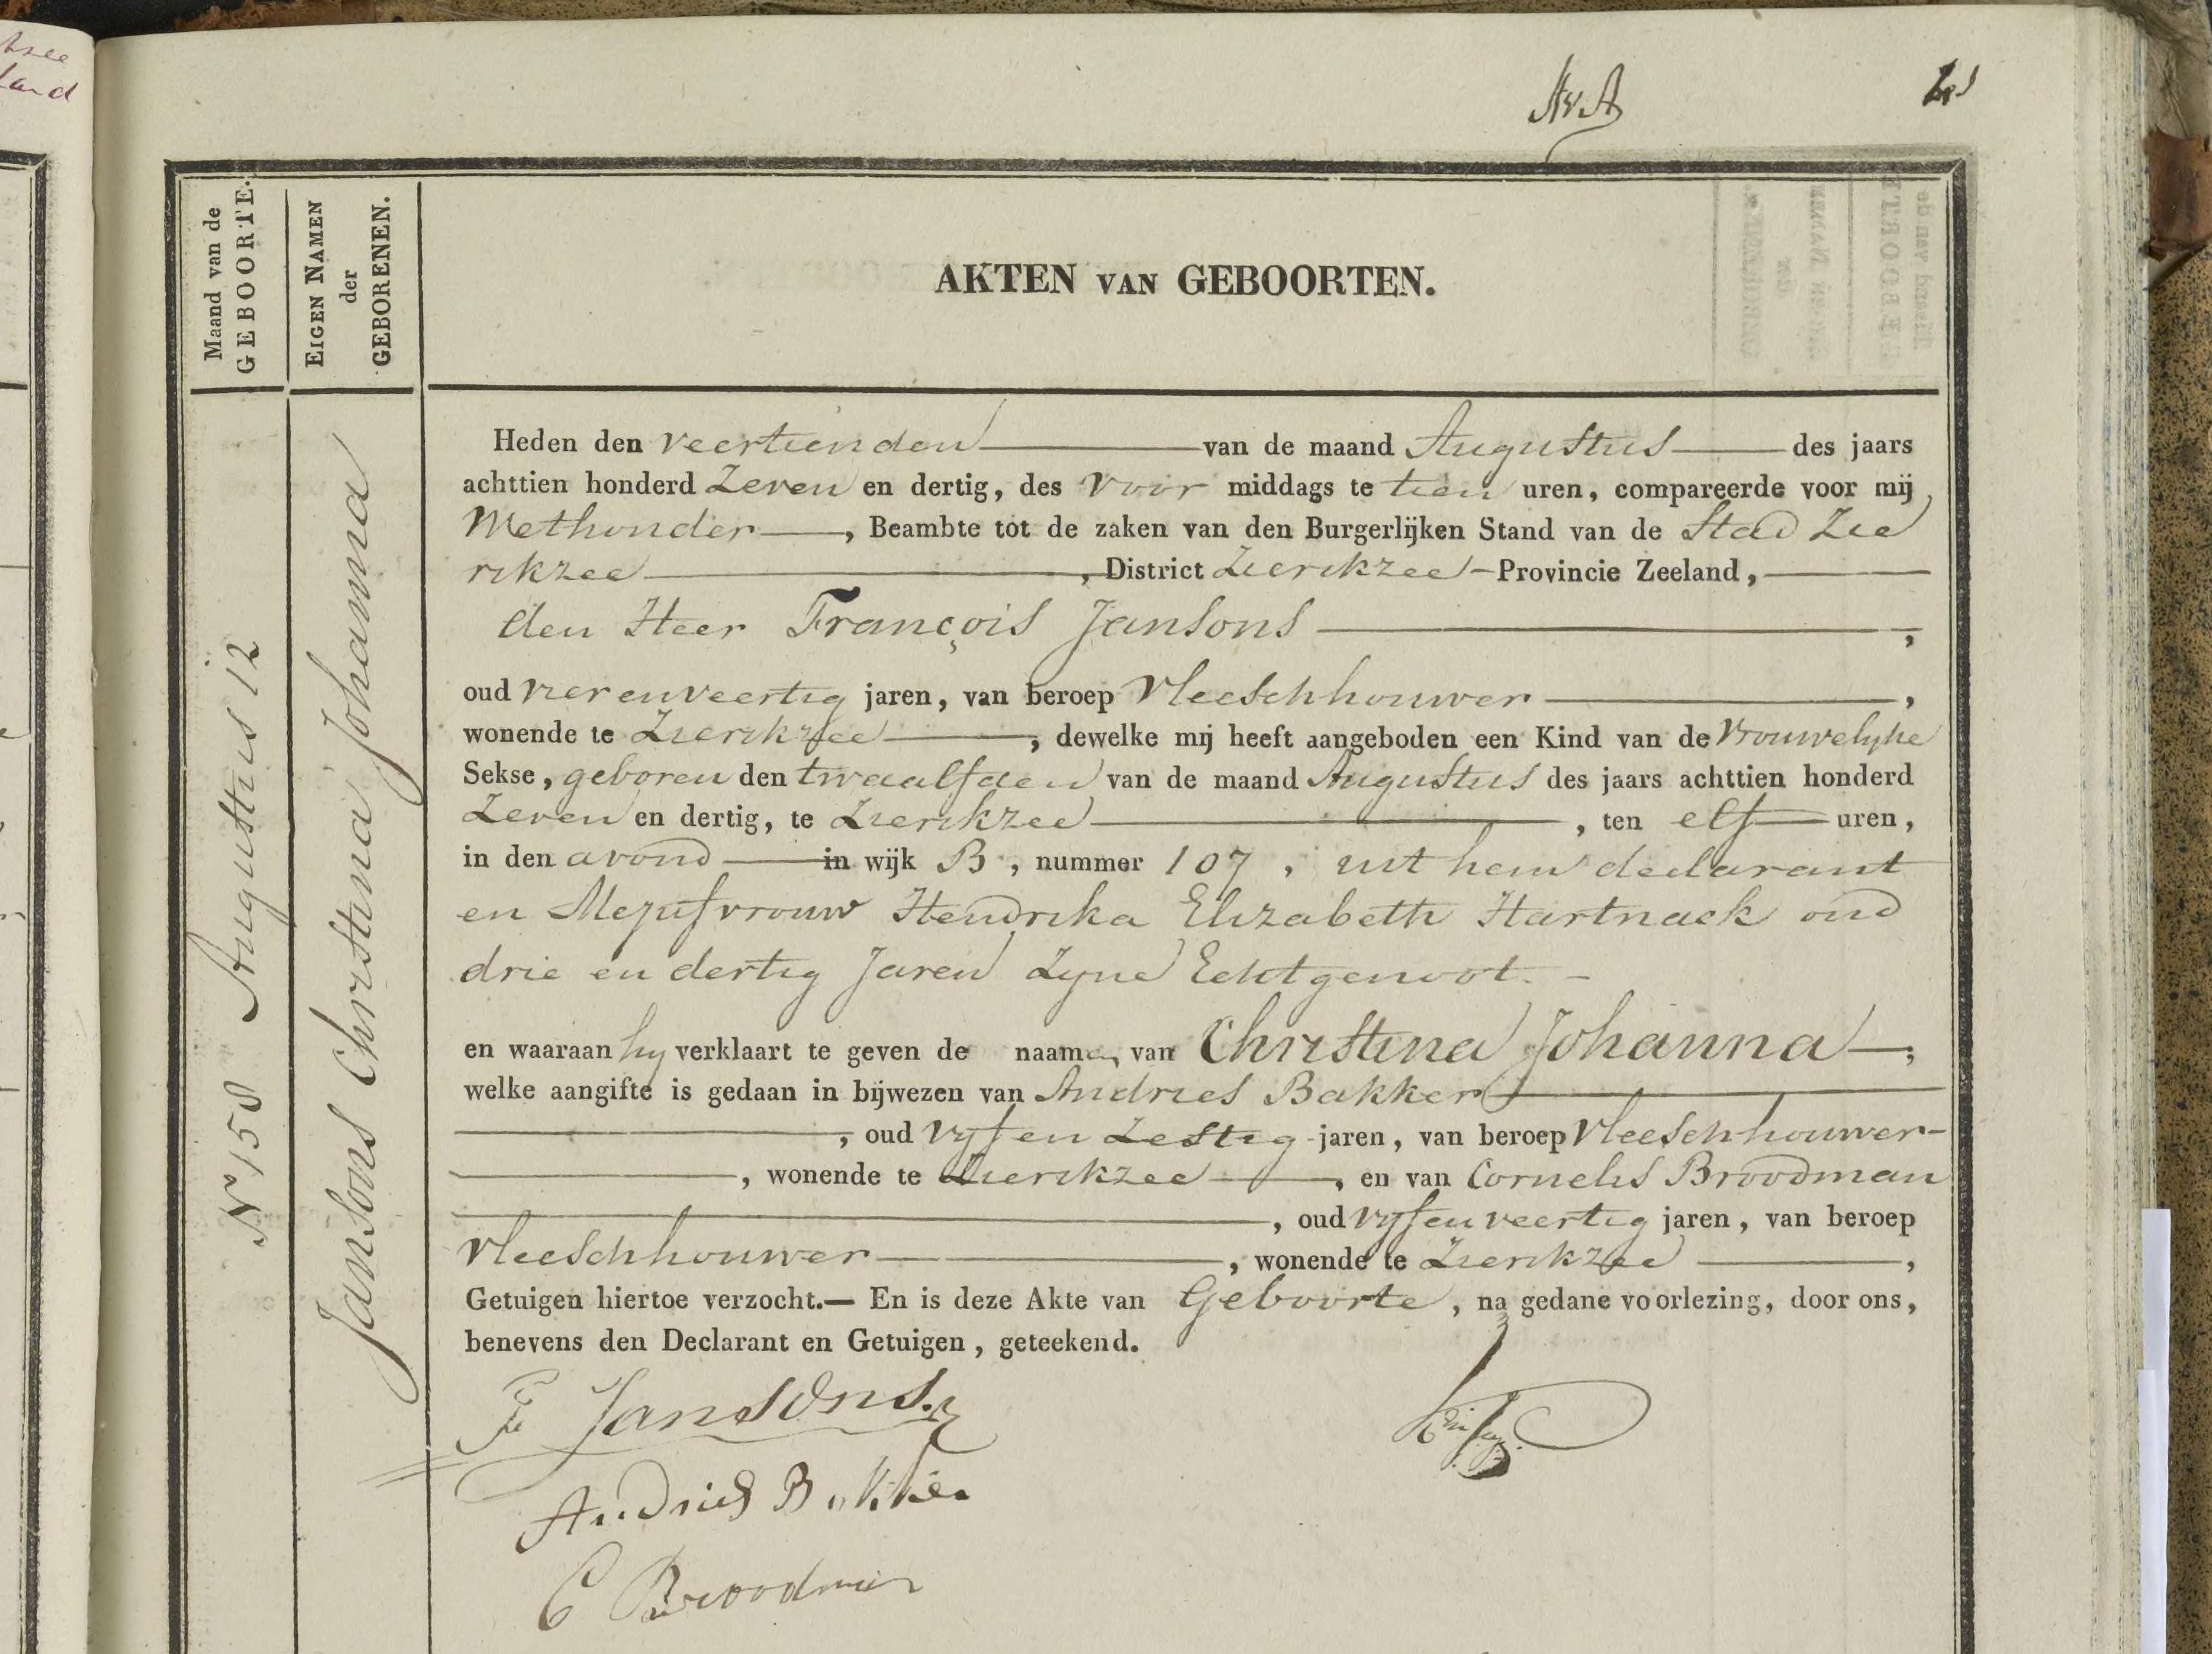 AvA
Maand van de
GEBOORTE.
EIGEN NAMEN
der
GEBORENEN.
AKTEN VAN GEBOORTEN.
N 158 Augustus 12
Jansons Christina Johanna
Heden den veertienden van de maand Augustus des jaars
achttien honderd Zeven en dertig, des voor middags te tien uren, compareerde voor mij
Wethouder, Beambte tot de zaken van den Burgerlijken Stand van de Stad Zie
rikzee, District Zierikzee Provincie Zeeland,
den Heer François Jansons,
oud vierenveertig jaren, van beroep Vleeschhouwer,
wonende te Zierikzee, dewelke mij heeft aangeboden een Kind van de Vrouwelyke
Sekse, geboren den twaalfden van de maand Augustus des jaars achttien honderd
Zeven en dertig, te Zierikzee, ten elf uren,
in den avond in wijk B, nummer 107, uit hem declarant
en Mejufvrouw Hendrika Elizabeth Hartnack oud
drie en dertig Jaren Zyne Echtgenoot.
en waaraan hy verklaart te geven de naamen van Christina Johanna,
welke aangifte is gedaan in bijwezen van Andries Bakker
, oud vyf en Zestig jaren, van beroep Vleeschhouwer
, wonende te Zierikzee, en van Cornelis Broodman
, oud vyfenveertig jaren, van beroep
Vleeschhouwer, wonende te Zierikzee,
Getuigen hiertoe verzocht.— En is deze Akte van Geboorte, na gedane voorlezing, door ons,
benevens den Declarant en Getuigen, geteekend.
F Jansons.
Andries Bakker
C Broodman